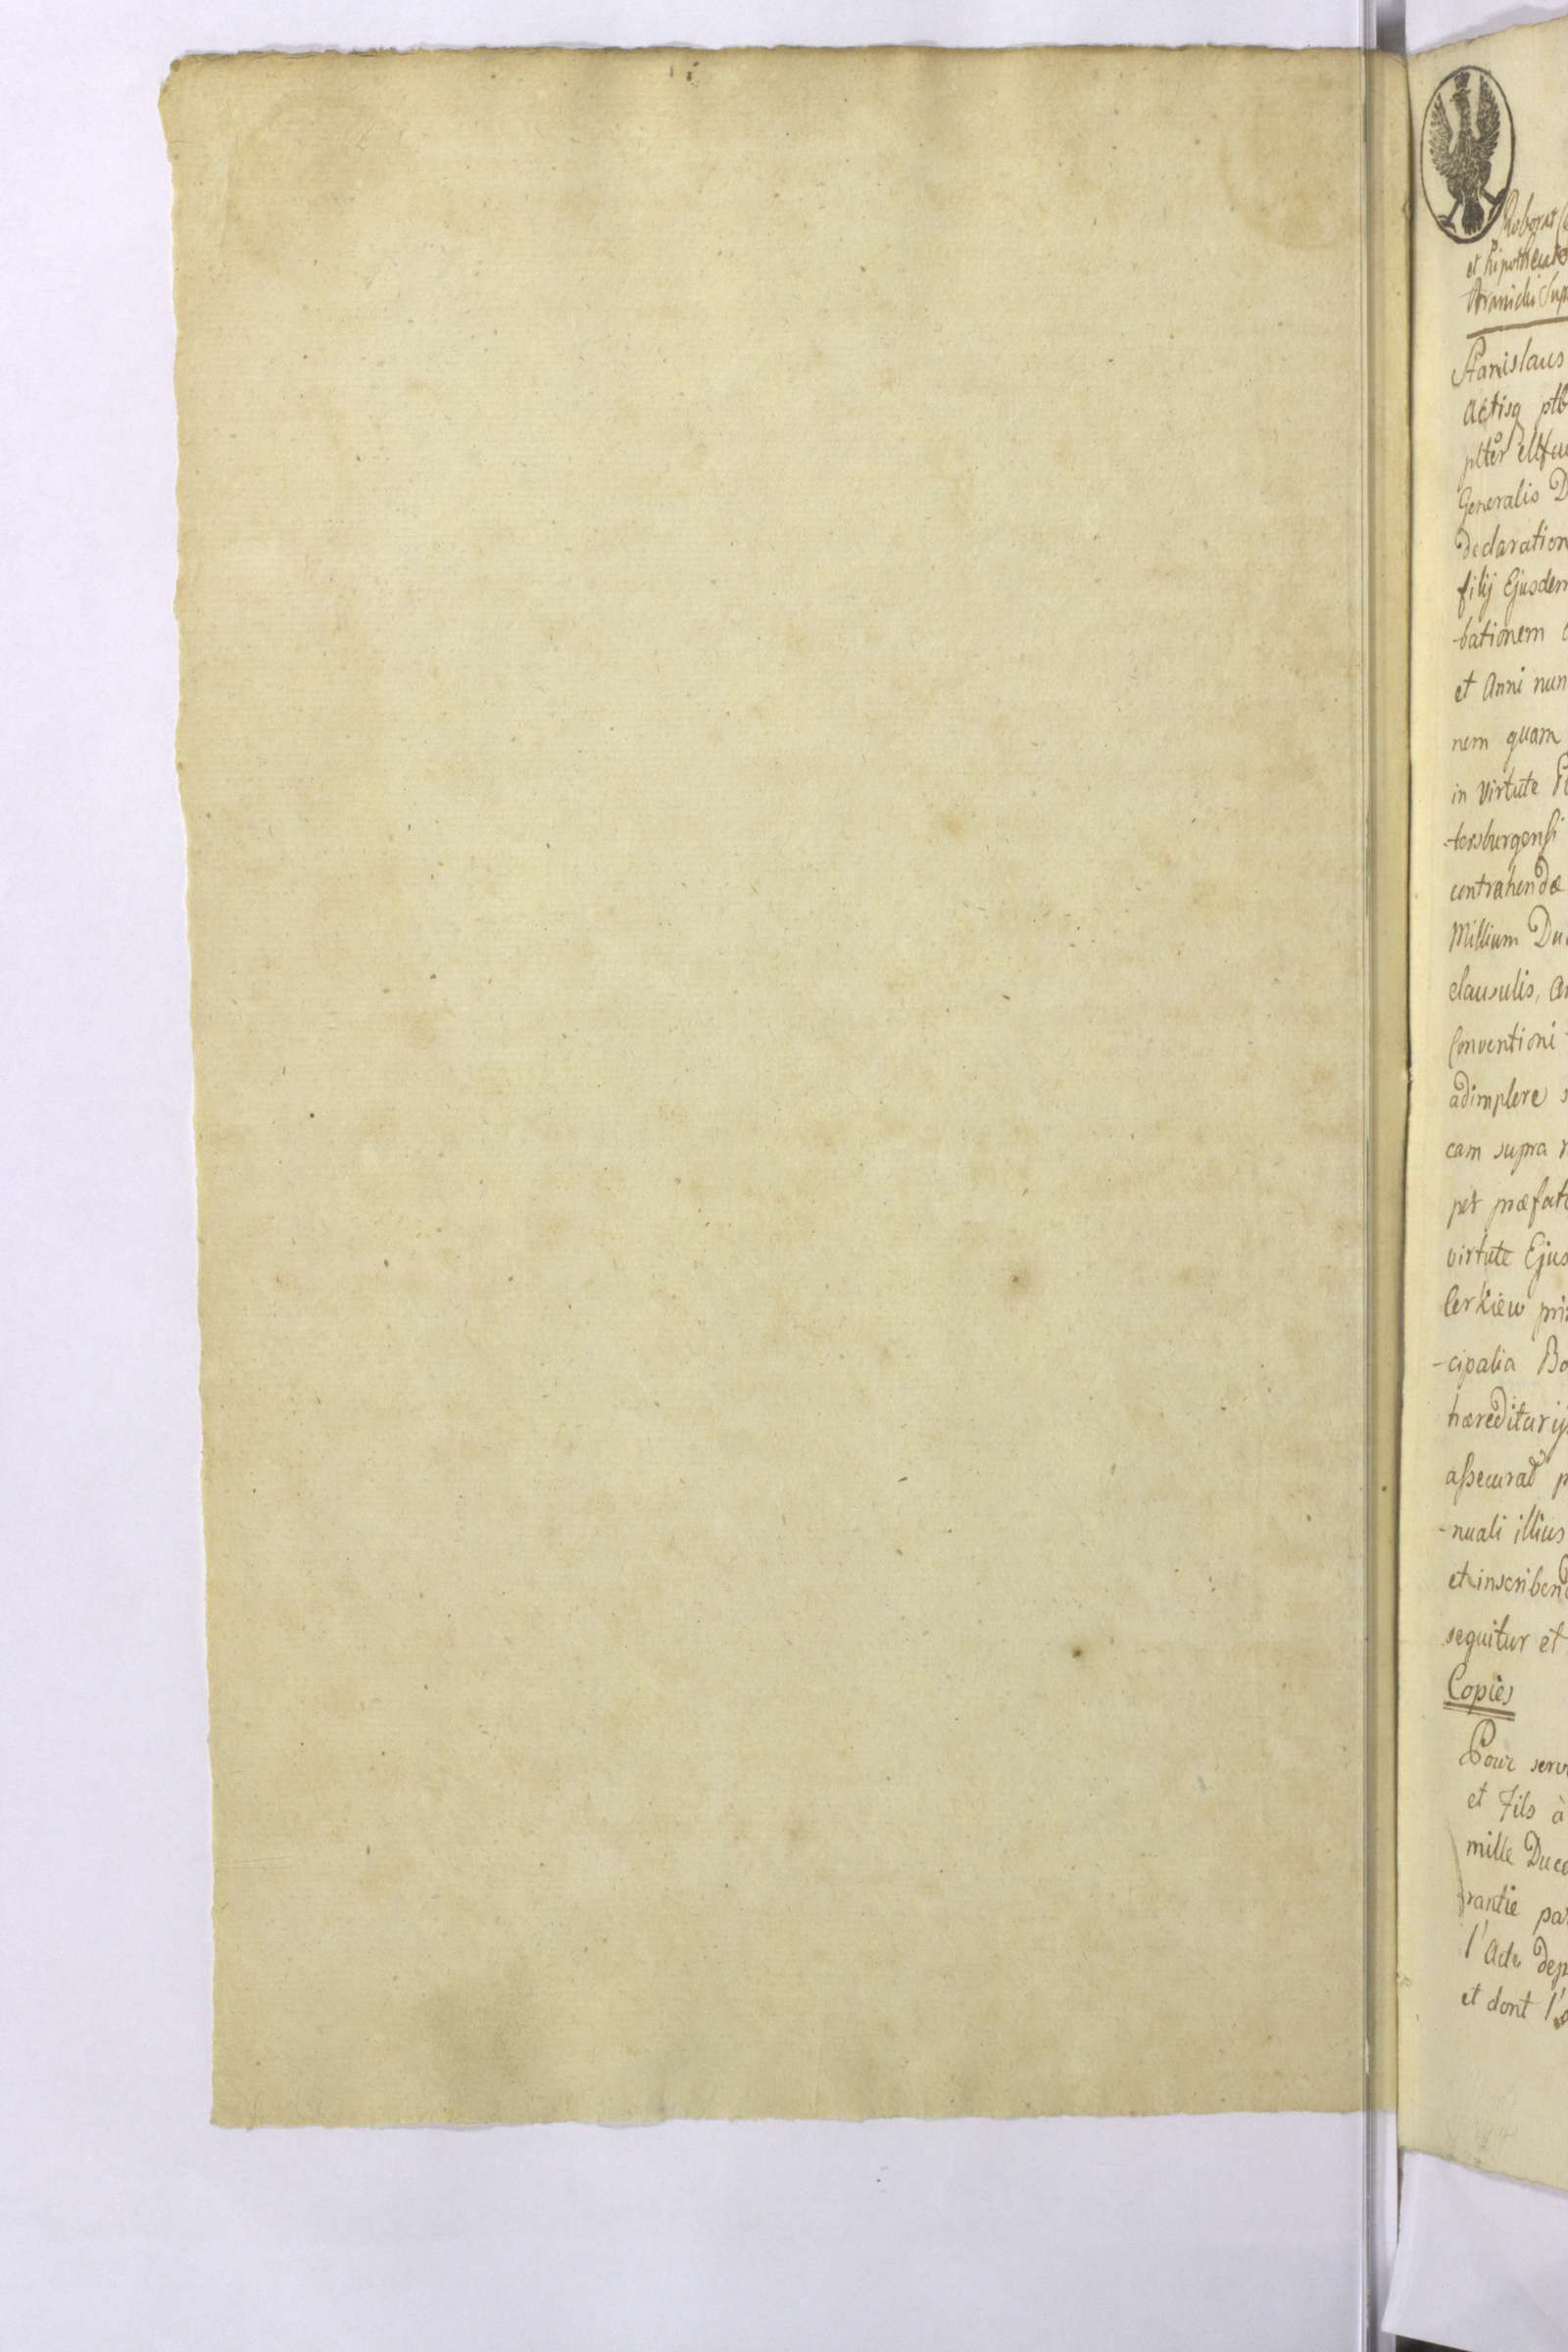 et hipothecat
Stanislaus
Actisq ptb
Generalis D
declaration
filij Ejusdem
-bationem
et Anni nun
nem quam
in virtute
-tersburgensi
contrahendæ
Millium Du
clausulis, a
Conventioni
adimplere
cam supra
per præfat
virtute Ejus
Cerkiew pri
-cipalia Bo
hæreditarij
assecurat p
-nuali illius
et inscribend
sequitur et
Copiès
Pour serv
et Fils à
mille Duca
rantie par
l'Acte dep
et dont l'